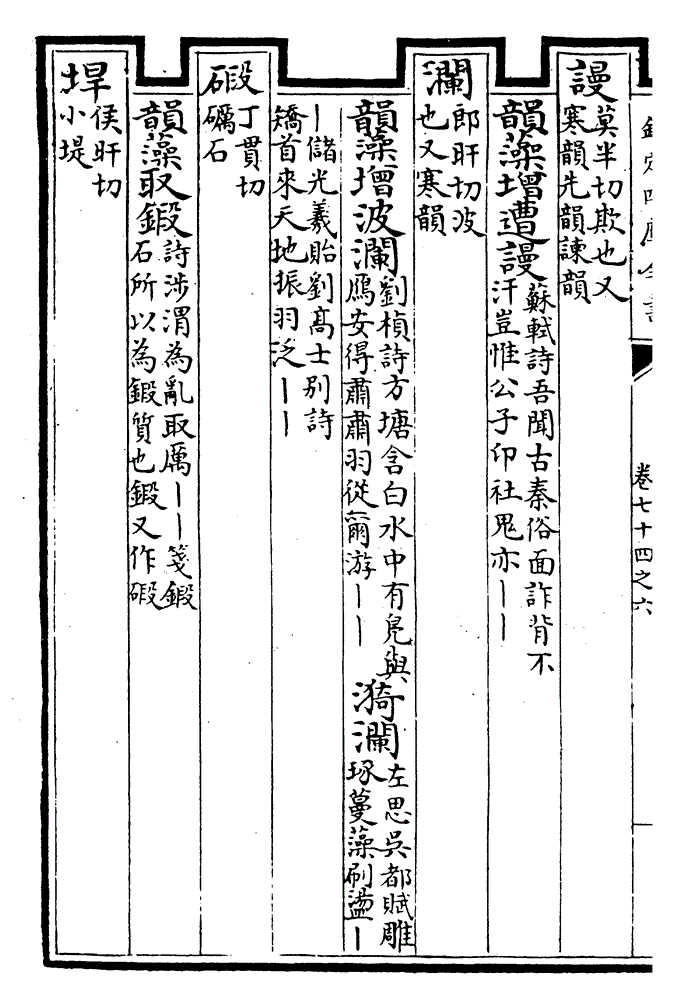 欽定四庫全書
卷七十四之六
謾莫半切欺也又
寒韻先韻諫韻
韻藻增遭謾蘇軾詩吾聞古秦俗面詐背不
汗豈惟公子印社鬼亦丨丨
瀾郎旰切波
也又寒韻
韻藻增波瀾劉楨詩方塘含白水中有鳧與
鴈安得肅肅羽從爾游丨丨
漪瀾左思吳都賦雕
琢蔓藻刷盪丨
丨儲光羲貽劉高士别詩
矯首來天地振羽泛丨丨
碫丁貫切
礪石
韻藻取鍛詩涉渭為亂取厲丨丨箋鍛
石所以為鍛質也鍛又作碫
垾侯旰切
小堤